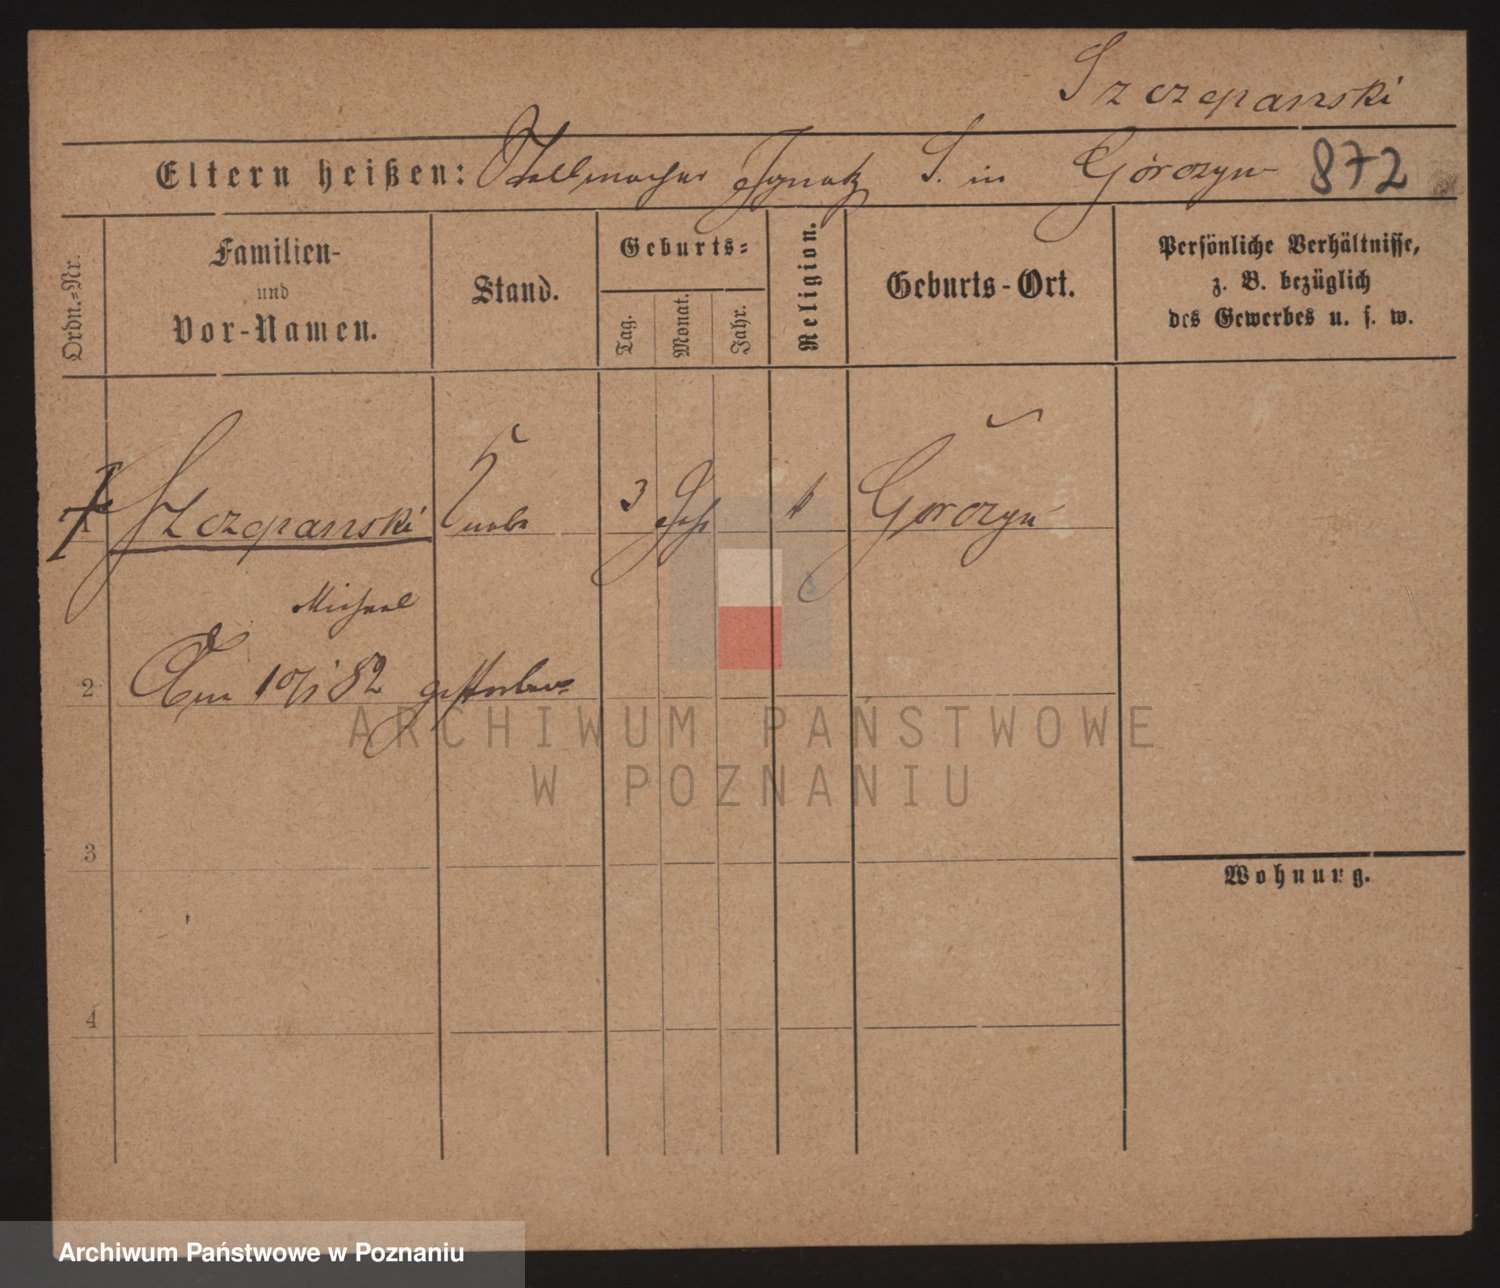 Szczepanski
Eltern heißen: Stellmacher Ignatz S. in Górczyn 872
Ordn.=Nr.
Familien-
und
Vor-Namen.
Stand.
Geburts=
Tag.
Monat.
Jahr.
Religion.
Geburts-Ort.
Persönliche Verhältnisse,
z. B. bezüglich
des Gewerbes u. s. w.
1 Szczepanski 3 Jahr k Gorczyn
Michael
2 Am 10/1 82 gestorben
3
4
Wohnung.
ARCHIWUM PAŃSTWOWE
W POZNANIU
Archiwum Państwowe w Poznaniu